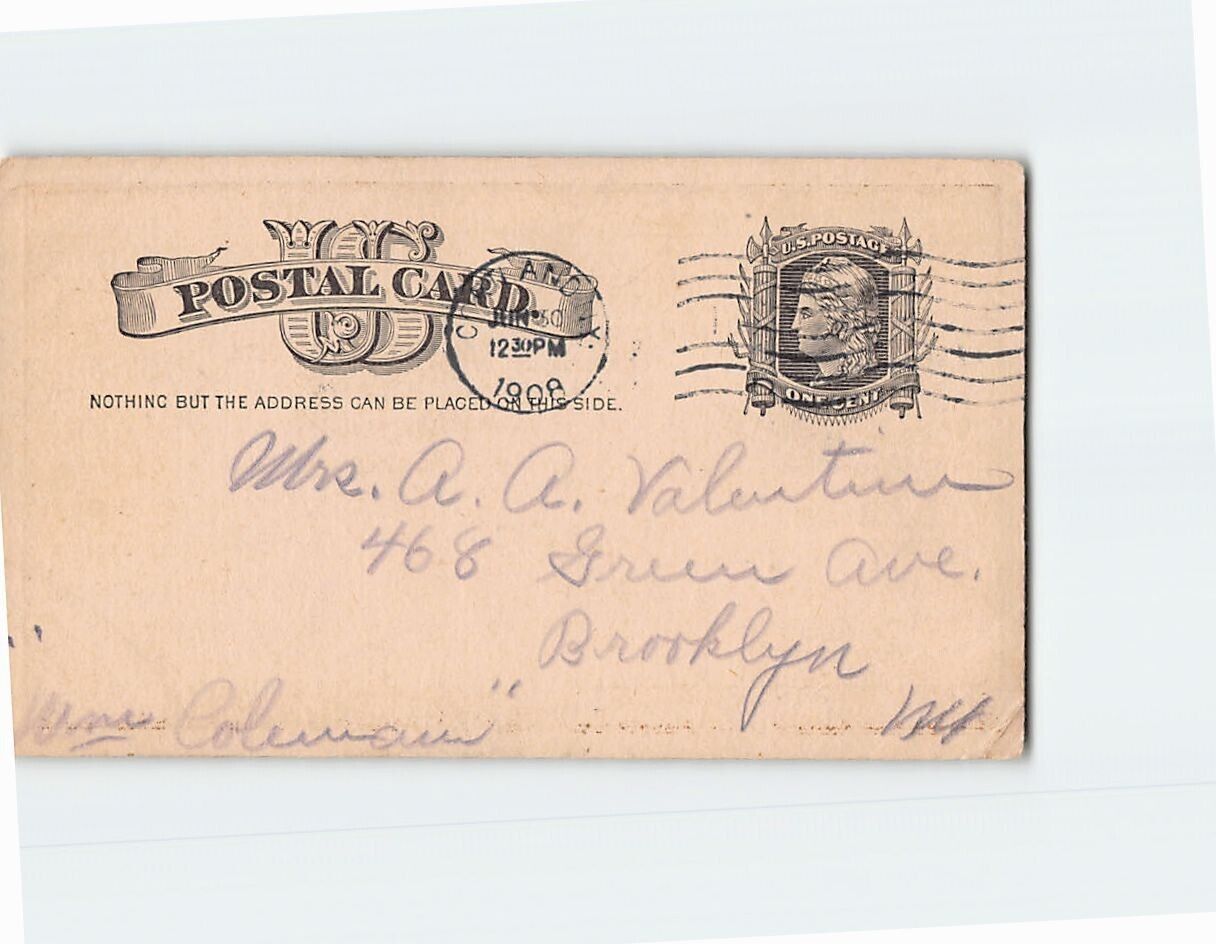 US
POSTAL CARD
U.S. POSTAGE
ONE CENT
JUN 30
12 30 PM
1908
NOTHING BUT THE ADDRESS CAN BE PLACED ON THIS SIDE.
Mrs. A. A. Valentine
468 Green Ave.
Brooklyn
NY
"Wm Coleman"